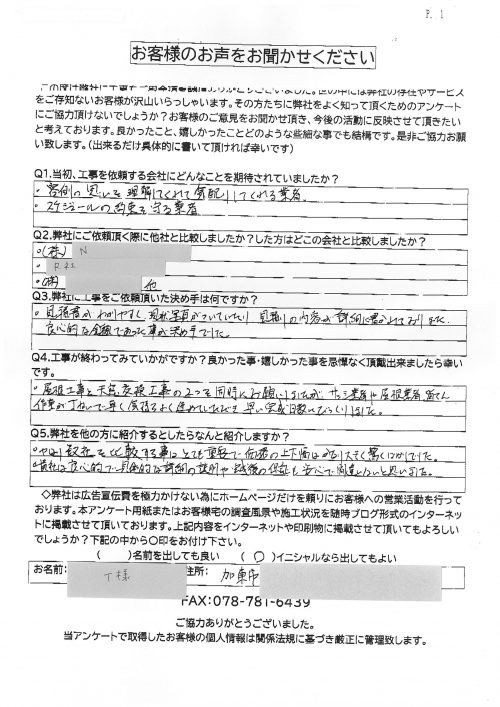 P. 1
お客様のお声をお聞かせください
この度は弊社に工事をご用命頂き誠にありがとうございました。世の中には弊社の存在やサービス
をご存知ないお客様が沢山いらっしゃいます。その方たちに弊社をよく知って頂くためのアンケート
にご協力頂けないでしょうか？お客様のご意見をお聞かせ頂き、今後の活動に反映させて頂きたい
と考えております。良かったこと、嬉しかったことどのような些細な事でも結構です。是非ご協力お願
い致します。（出来るだけ具体的に書いて頂ければ幸いです）
Q1.当初、工事を依頼する会社にどんなことを期待されていましたか？
・客側の思いを理解してくれて気配りしてくれる業者。
・スケジュールの約束を守る業者
Q2.弊社にご依頼頂く際に他社と比較しましたか？した方はどこの会社と比較しましたか？
・(株) N
・R社
・(株) 他
Q3.弊社に工事をご依頼頂いた決め手は何ですか？
・見積書がわかりやすく、現状写真がついていたり 見積りの内容が詳細に書かれておりました。
良心的な金額であった事が決め手でした。
Q4.工事が終わってみていかがですか？良かった事・嬉しかった事を忌憚なく頂戴出来ましたら幸い
です。
・屋根工事と 工事の2つを同時にお願いしましたが、サッシ業者や屋根業者 皆さん
作業が丁ねいで早く 進めていただき 早い完成日数にびっくりしました。
Q5.弊社を他の方に紹介するとしたらなんと紹介しますか？
・やはり数社を比較する事はとても重要で価格の上下幅はかなり大きく驚くばかりでした。
貴社は良心的で具体的な詳細の説明や 保証も 安心で間違いないと思いました。
◇弊社は広告宣伝費を極力かけない為にホームページだけを頼りにお客様への営業活動を行って
おります。本アンケート用紙またはお客様宅の調査風景や施工状況を随時ブログ形式のインターネッ
トに掲載させて頂いております。上記内容をインターネットや印刷物に掲載させて頂いてもよろしい
でしょうか？下記の中から○印をお付け下さい。
（　）名前を出しても良い　（○）イニシャルなら出してもよい
お名前: T様 住所: 加東市
FAX:078-781-6439
ご協力ありがとうございました。
当アンケートで取得したお客様の個人情報は関係法規に基づき厳正に管理致します。